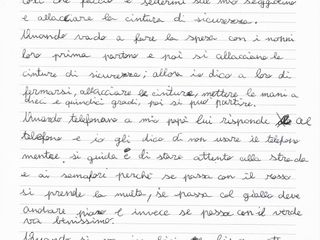 così che faccio è sedermi sul mio seggiolino
e allacciare la cintura di sicurezza.
Quando vado a fare la spesa con i nonni
loro prima partono e poi si allacciano le
cinture di sicurezza; allora io dico a loro di
fermarsi, allacciare le cinture, mettere le mani a
dieci e quindici gradi, poi si può partire.
Quando telefonano a mio papi lui risponde al
telefono e io gli dico di non usare il telefono
mentre si guida e di stare attento alla strada
e ai semafori perché se passa con il rosso
si prende la multa, se passa col giallo deve
andare piano e invece se passa con il verde
va benissimo.
Quando si